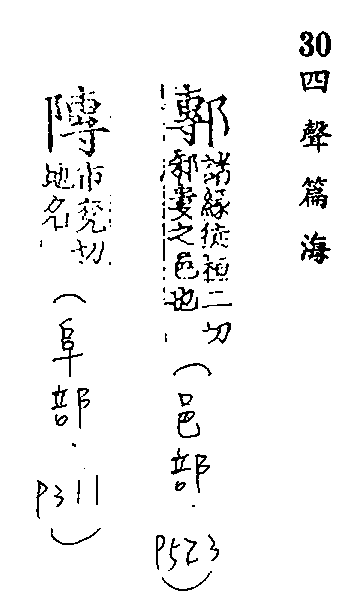 30四聲篇海
鄟
諸緣徒桓二切
邾婁之邑也
（邑部．P523）
䧠
市兖切
地名
（阜部．P311）